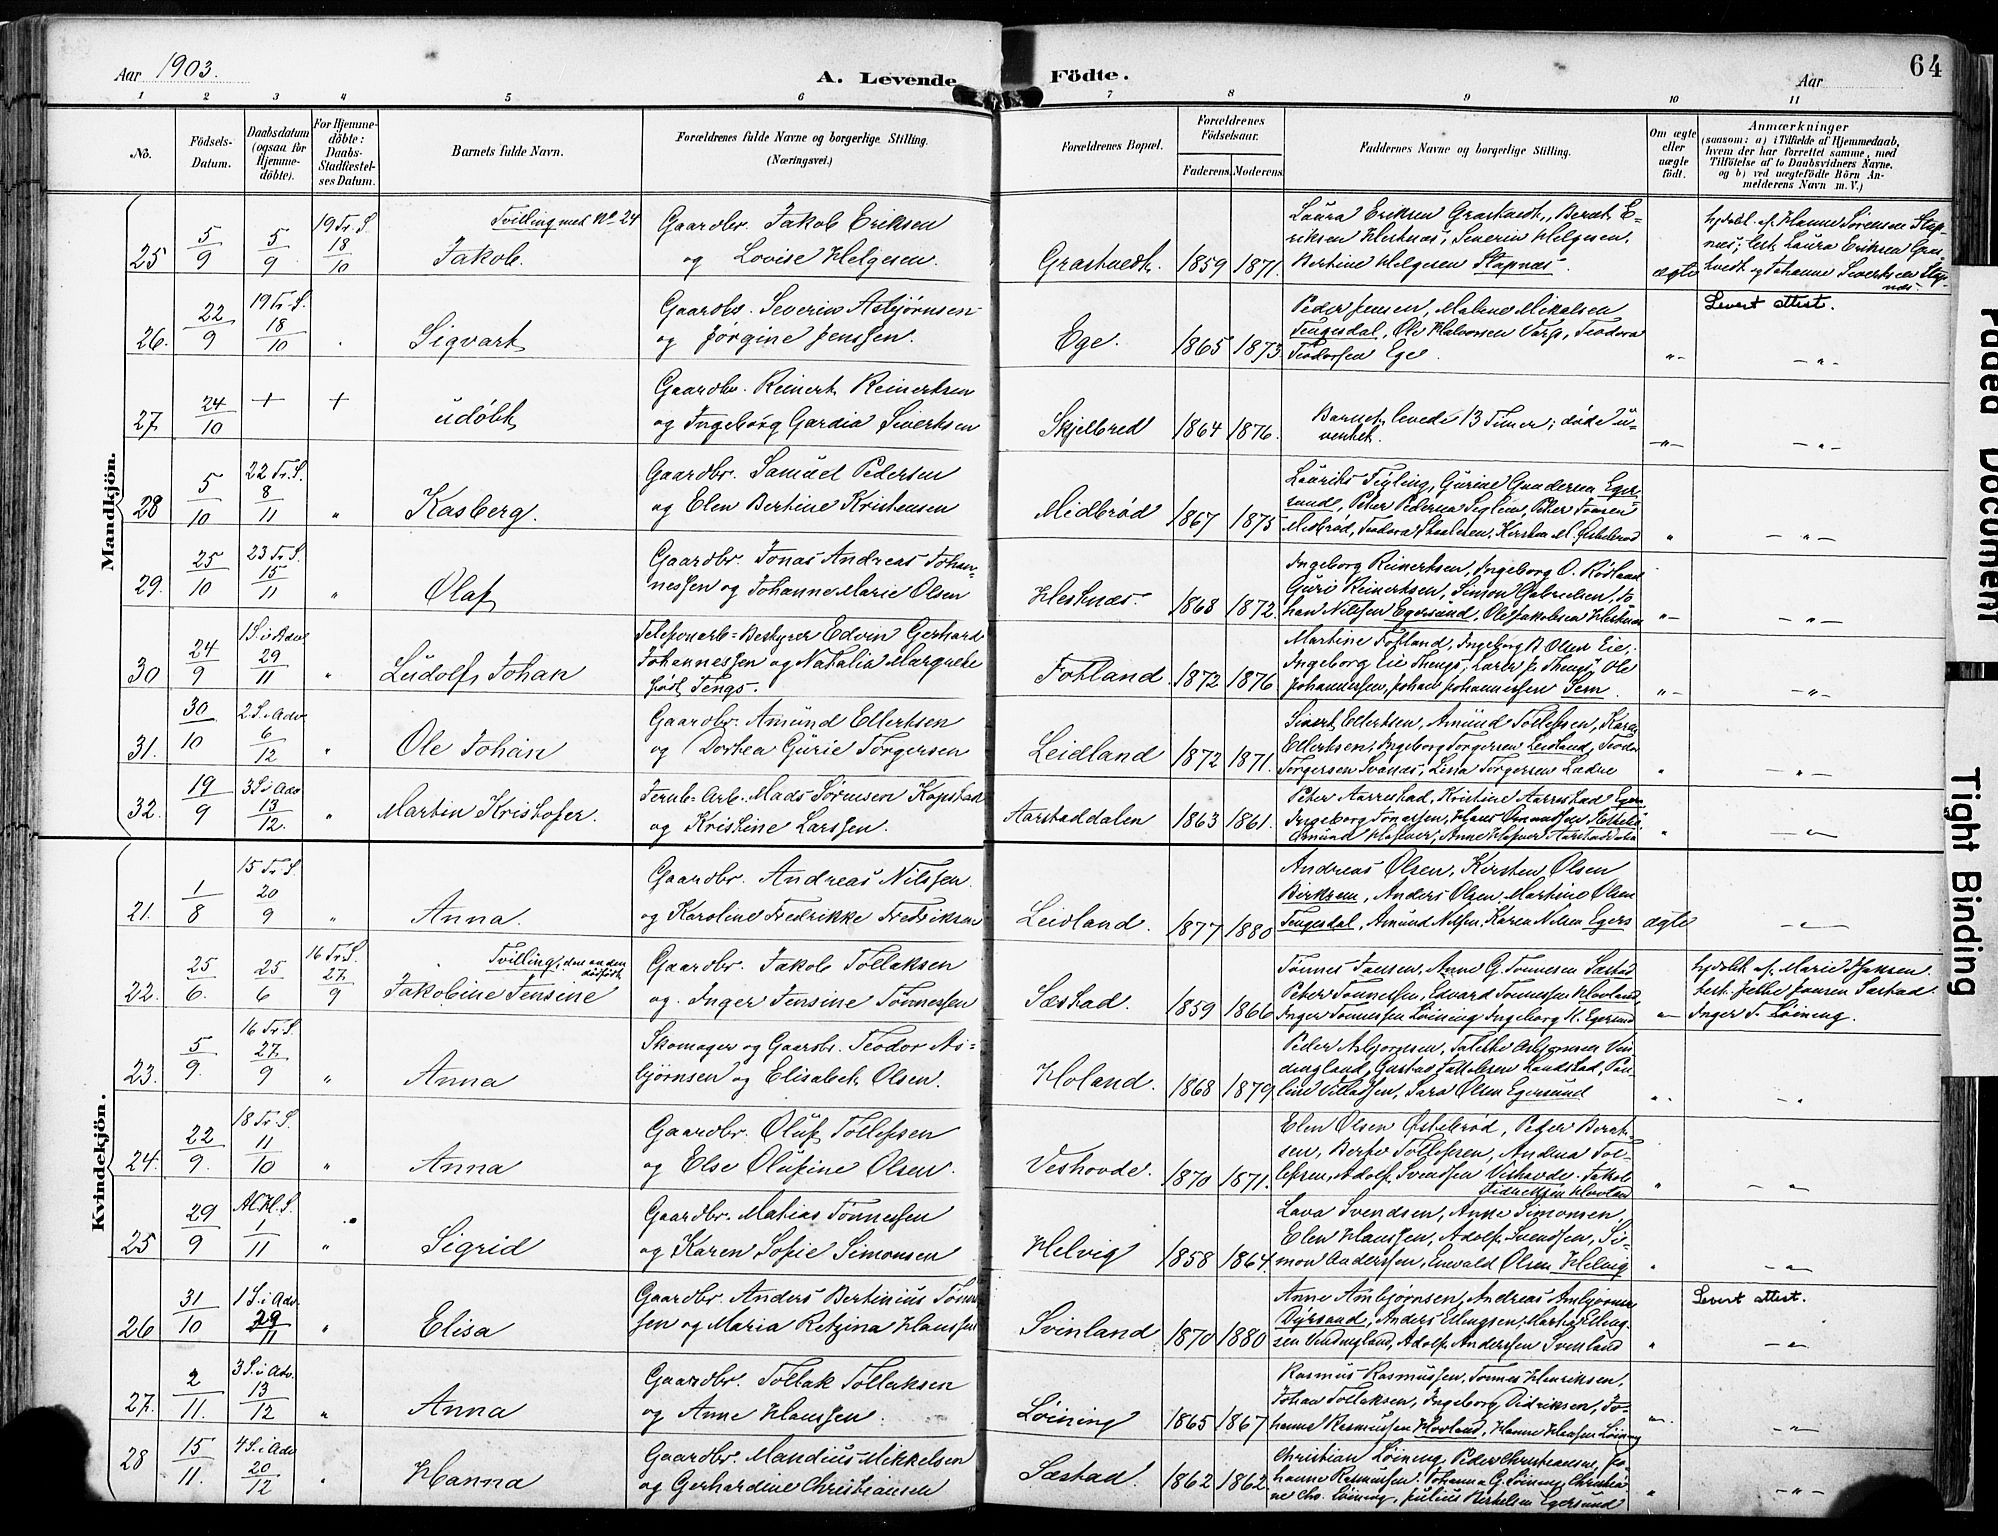 Aar 1903.
A. Levende Födte.
Aar
64
1 2 3 4 5 6 7 8 9 10 11
No.
Födsels-Datum.
Daabsdatum (ogsaa for Hjemme-döbte).
For Hjemme-döbte: Daabs-Stadfæstel-ses Datum.
Barnets fulde Navn.
Forældrenes fulde Navne og borgerlige Stilling. (Næringsvei.)
Forældrenes Bopæl.
Forældrenes Födselsaar.
Faderens. Moderens.
Faddernes Navne og borgerlige Stilling.
Om ægte eller uægte født.
Anmærkninger
(saasom: a) i Tilfælde af Hjemmedaab,
hvem der har forrettet samme, med
Tilföielse af to Daabsvidners Navne,
og b) ved uægtefödte Börn An-
melderens Navn m. V.)
Mandkjön.
25 5/9 5/9 19 Tr. S. 18/10 Tvilling med No 24 Jakob. Gaardbr. Jakob Eriksen
og Lovise Helgesen. Grastvedt. 1859 1871. Laura Eriksen Grastvedt, Berat E-
riksen Hestnæs, Severin Helgesen,
Bertine Helgesen Stapnæs. ægte
26. 22/9 19 Tr. S. 18/10 Sigvart Gaardbr. Severin Asbjørnsen
og Jørgine Jenssen. Ege. 1865 1873 Peder Jensen, Malene Mikalsen
Tengesdal, Ole Halvorsen Varp, Teodora
Teodorsen Ege. -"- Levert attest. -"-
27. 24/10 + + udøbt Gaardbr. Reinert Reinertsen
og Ingeborg Gardia Sivertsen Skjelbred 1864 1876. Barnet levede 13 Timer; døde u-
ventet. -"- -"-
28 5/10 22 Tr. S. 8/11 " Kasberg. Gaardbr. Samuel Pedersen
og Elen Bertine Kristensen Midbrød 1867 1875 Gurine Gundersen Eger-
sund, Peter Pedersen Peter Tonsen
Midbrød, Teodora Kirsten M. Østebrød " -"-
29. 25/10 23 Tr. S. 15/11 " Olaf Gaardbr. Jonas Andreas Johan-
nessen og Johanne Marie Olsen Hestnæs. 1868 1872. Ingeborg Reinertsen, Ingeborg O. Rødland
Guri Reinertsen, Simon Gabrielsen, Jo
han Nilssen Egersund, Ole Jakobsen Hestnæs -"- -"-
30 24/9 1 S. i Adv 29/11 " Ludolf Johan Telefonerb-Bestyrer Edvin Gerhard
Johannessen og Natalia Margrete
født Tengs. Fotland 1872 1876 Martine Fotland, Ingeborg B Olsen Eie,
Ingeborg Eie Thengs, Lars J. Thengs, Ole
Johannessen, Johan Johannessen Sem. -"- -"-
31. 30/10 2 S. i Adv 6/12 " Ole Johan Gaardbr. Amund Ellertsen
og Dorthea Gurie Torgersen Leidland 1872 1871. Sivert Ellertsen, Amund Tollefsen, Karen
Ellertsen, Ingeborg Torgersen Leidland, Teodor
Torgersen Svanæs, Lina Torgersen Ladre " -"-
32. 19/9 3 S. i Adv 13/12. " Martin Kristofer. Jernb-Arb. Mads Sørensen Kopstad
og Kristine Larssen. Aarstaddalen 1863 1861. Peter Aarrestad, Kristine Aarrestad Egers
Ingeborg Jonassen, Hans
Amund Hafsøer, Anne Hafsøer Aarstaddalen " -"-
Kvindekjön.
21. 1/8 15 Tr. S. 20/9 " Anna. Gaardbr. Andreas Nilssen.
og Karoline Fredrikke Fredriksen Leidland. 1877 1880 Andreas Olsen, Kirsten Olsen
Birksem, Anders Olsen, Martine Olsen
Tengesdal, Amund Nilsen, Karen Nilsen Egers ægte -"-
22. 25/6. 25/6 16 Tr. S. 27/9 Tvilling, den anden dødfødt Jakobine Jensine Gaardbr. Jakob Tollaksen
og. Inger Jensine Tønnessen Sæstad. 1859 1866 Tønnes Jansen, Anne G. Tonnesen Sæstad
Peter Tønnessen, Edvard Tonnessen Hovland,
Inger Tonnessen Løining, Ingeborg H. Egersund -"- hjdøbt af Marie Hansen
test. Jensen Sæstad.
Inger T. Løining.
23. 5/9. 16 Tr. S. 27/9 " Anna Skomager og Gaardbr. Teodor As-
bjørnsen og Elisabet Olsen. Holand. 1868 1879 Peder Asbjørnsen, Taletta Asbjørnsen Vin-
dingland, Gustav Tollefsen Landstad, Pau-
line Villadsen, Sara Olsen Egersund ". -"
24. 22/9. 18 Tr. S. 11/10 " Anna Gaardbr. Oluf Tollefsen
og Else Olufine Olsen. Veshovde. 1870 1871. Elen Olsen Østebrød, Peder Bernt-
sen, Berte Tollefsen, Andrea Tol-
lefsen, Adolf Svendsen Veshovde. Jakob
Didriksen Hovland " -"
25 29/9 A.H.S. 1/11 " Sigrid Gaardbr. Matias Tønnessen
og Karen Sofie Simonsen Helvig 1858 1864. Lava Svendsen, Anne Simonsen,
Elen Hanssen, Adolf Svendsen, Si-
mon Anderssen, Enevald Olsen Helvig " -"-
26 31/10 1 S. i Adv. 29/11 " Elisa Gaardbr. Anders Bertinius Tønne-
sen og Maria Retzina Hanssen Svinland 1870 1880 Anne Ambjørnsen, Andreas Ambjørnsen
Dyrsand, Anders Elingsen, Marta Eling-
sen Vindingland, Adolf Anderssen Svinland " Levert attest. -"-
27. 2/11. 3 S. i Adv. 13/12 " Anna Gaardbr. Tollak Tollaksen
og Anne Hanssen. Løining 1865 1867 Rasmus Rasmussen, Tønnes Henriksen,
Johan Tollaksen, Ingeborg Didriksen, Jo-
hanne Rasmussen Hovland, Hanne Hansen Løining -"- -"-
28 15/11. 4 S. i Adv 20/12 " Hanna Gaardbr. Mandius Mikkelsen
og Gerhardine Christiansen Sæstad 1862 1862 Christian Løining, Peder Christiansen, Jo-
hanne Rasmussen, Johanna G. Løining, Christia-
ne Chr. Løining, Julius Bertelsen Egersund " -"-
Faded Document
Tight Binding